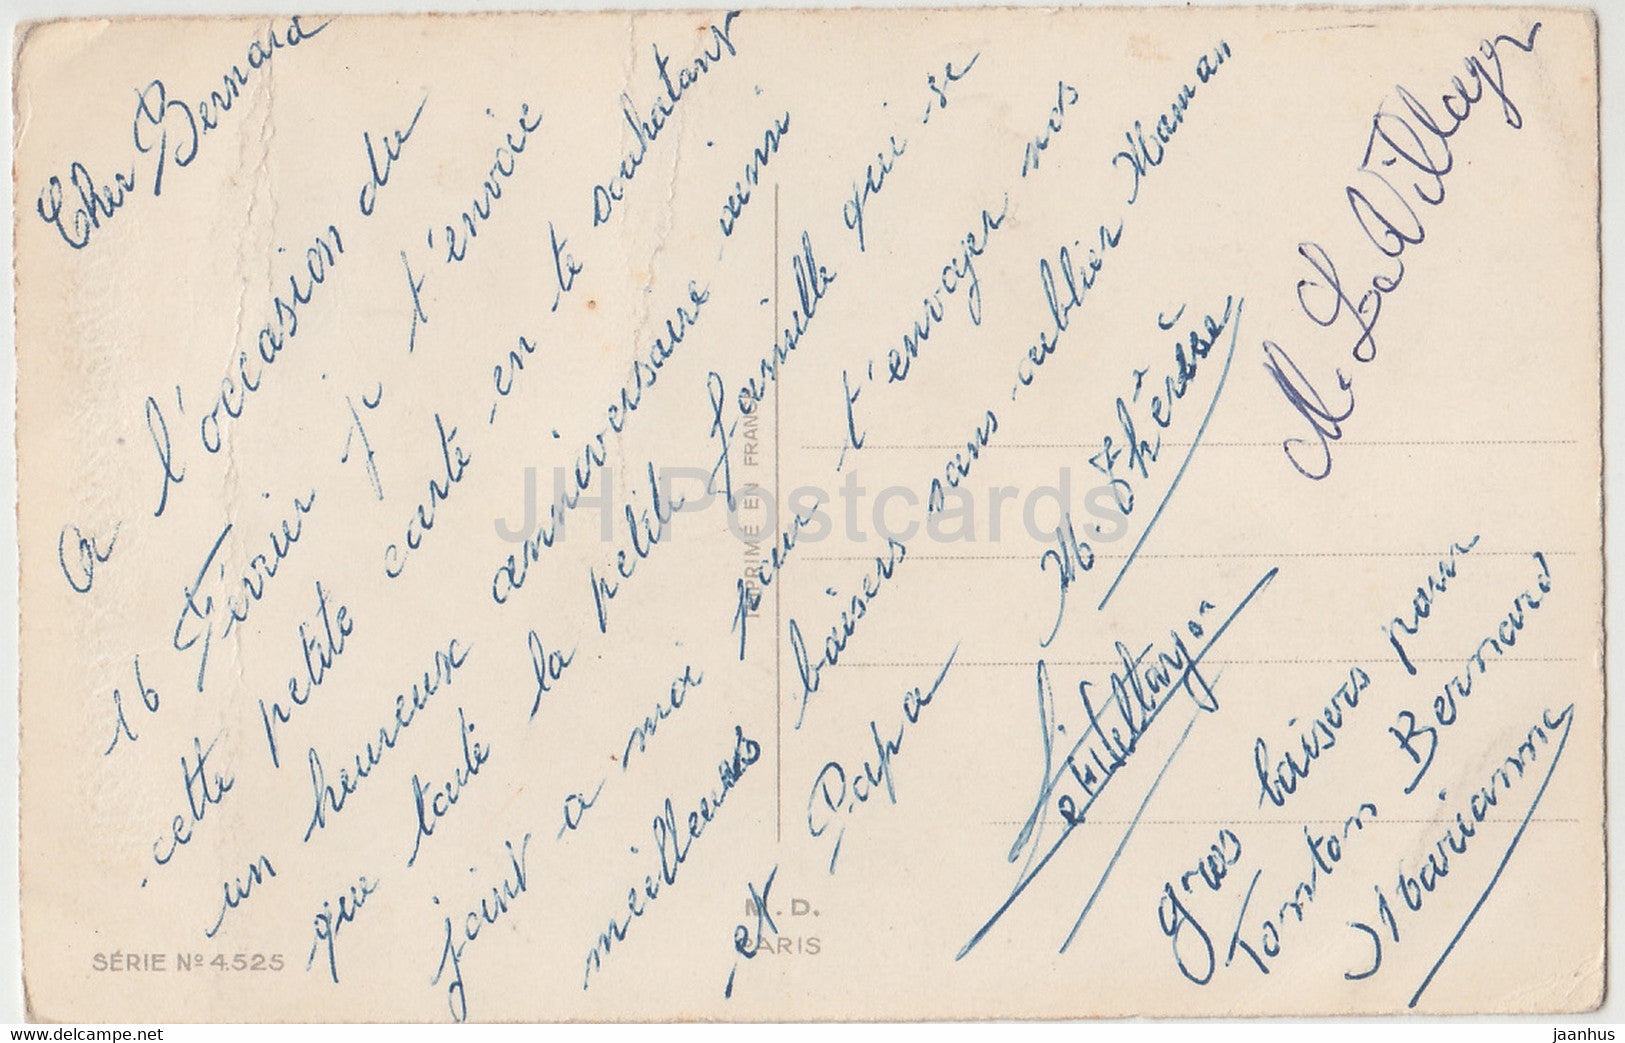 Cher Bernard
A l'occasion du
16 Février j t'envoie
cette petite carte en te souhatant
un heureux anniversaire ainsi
que toute la petite famille qui se
joint a moi pour t'envoyer nos
meilleurs baisers sans oublier Maman
et Papa
M. Thérèse
gros baisers pour
Tonton Bernard
Marianne
IMPRIMÉ EN FRANCE
M. D.
PARIS
SÉRIE Nº 4.525
JH Postcards
www.jh-postcards.com
jaanhus